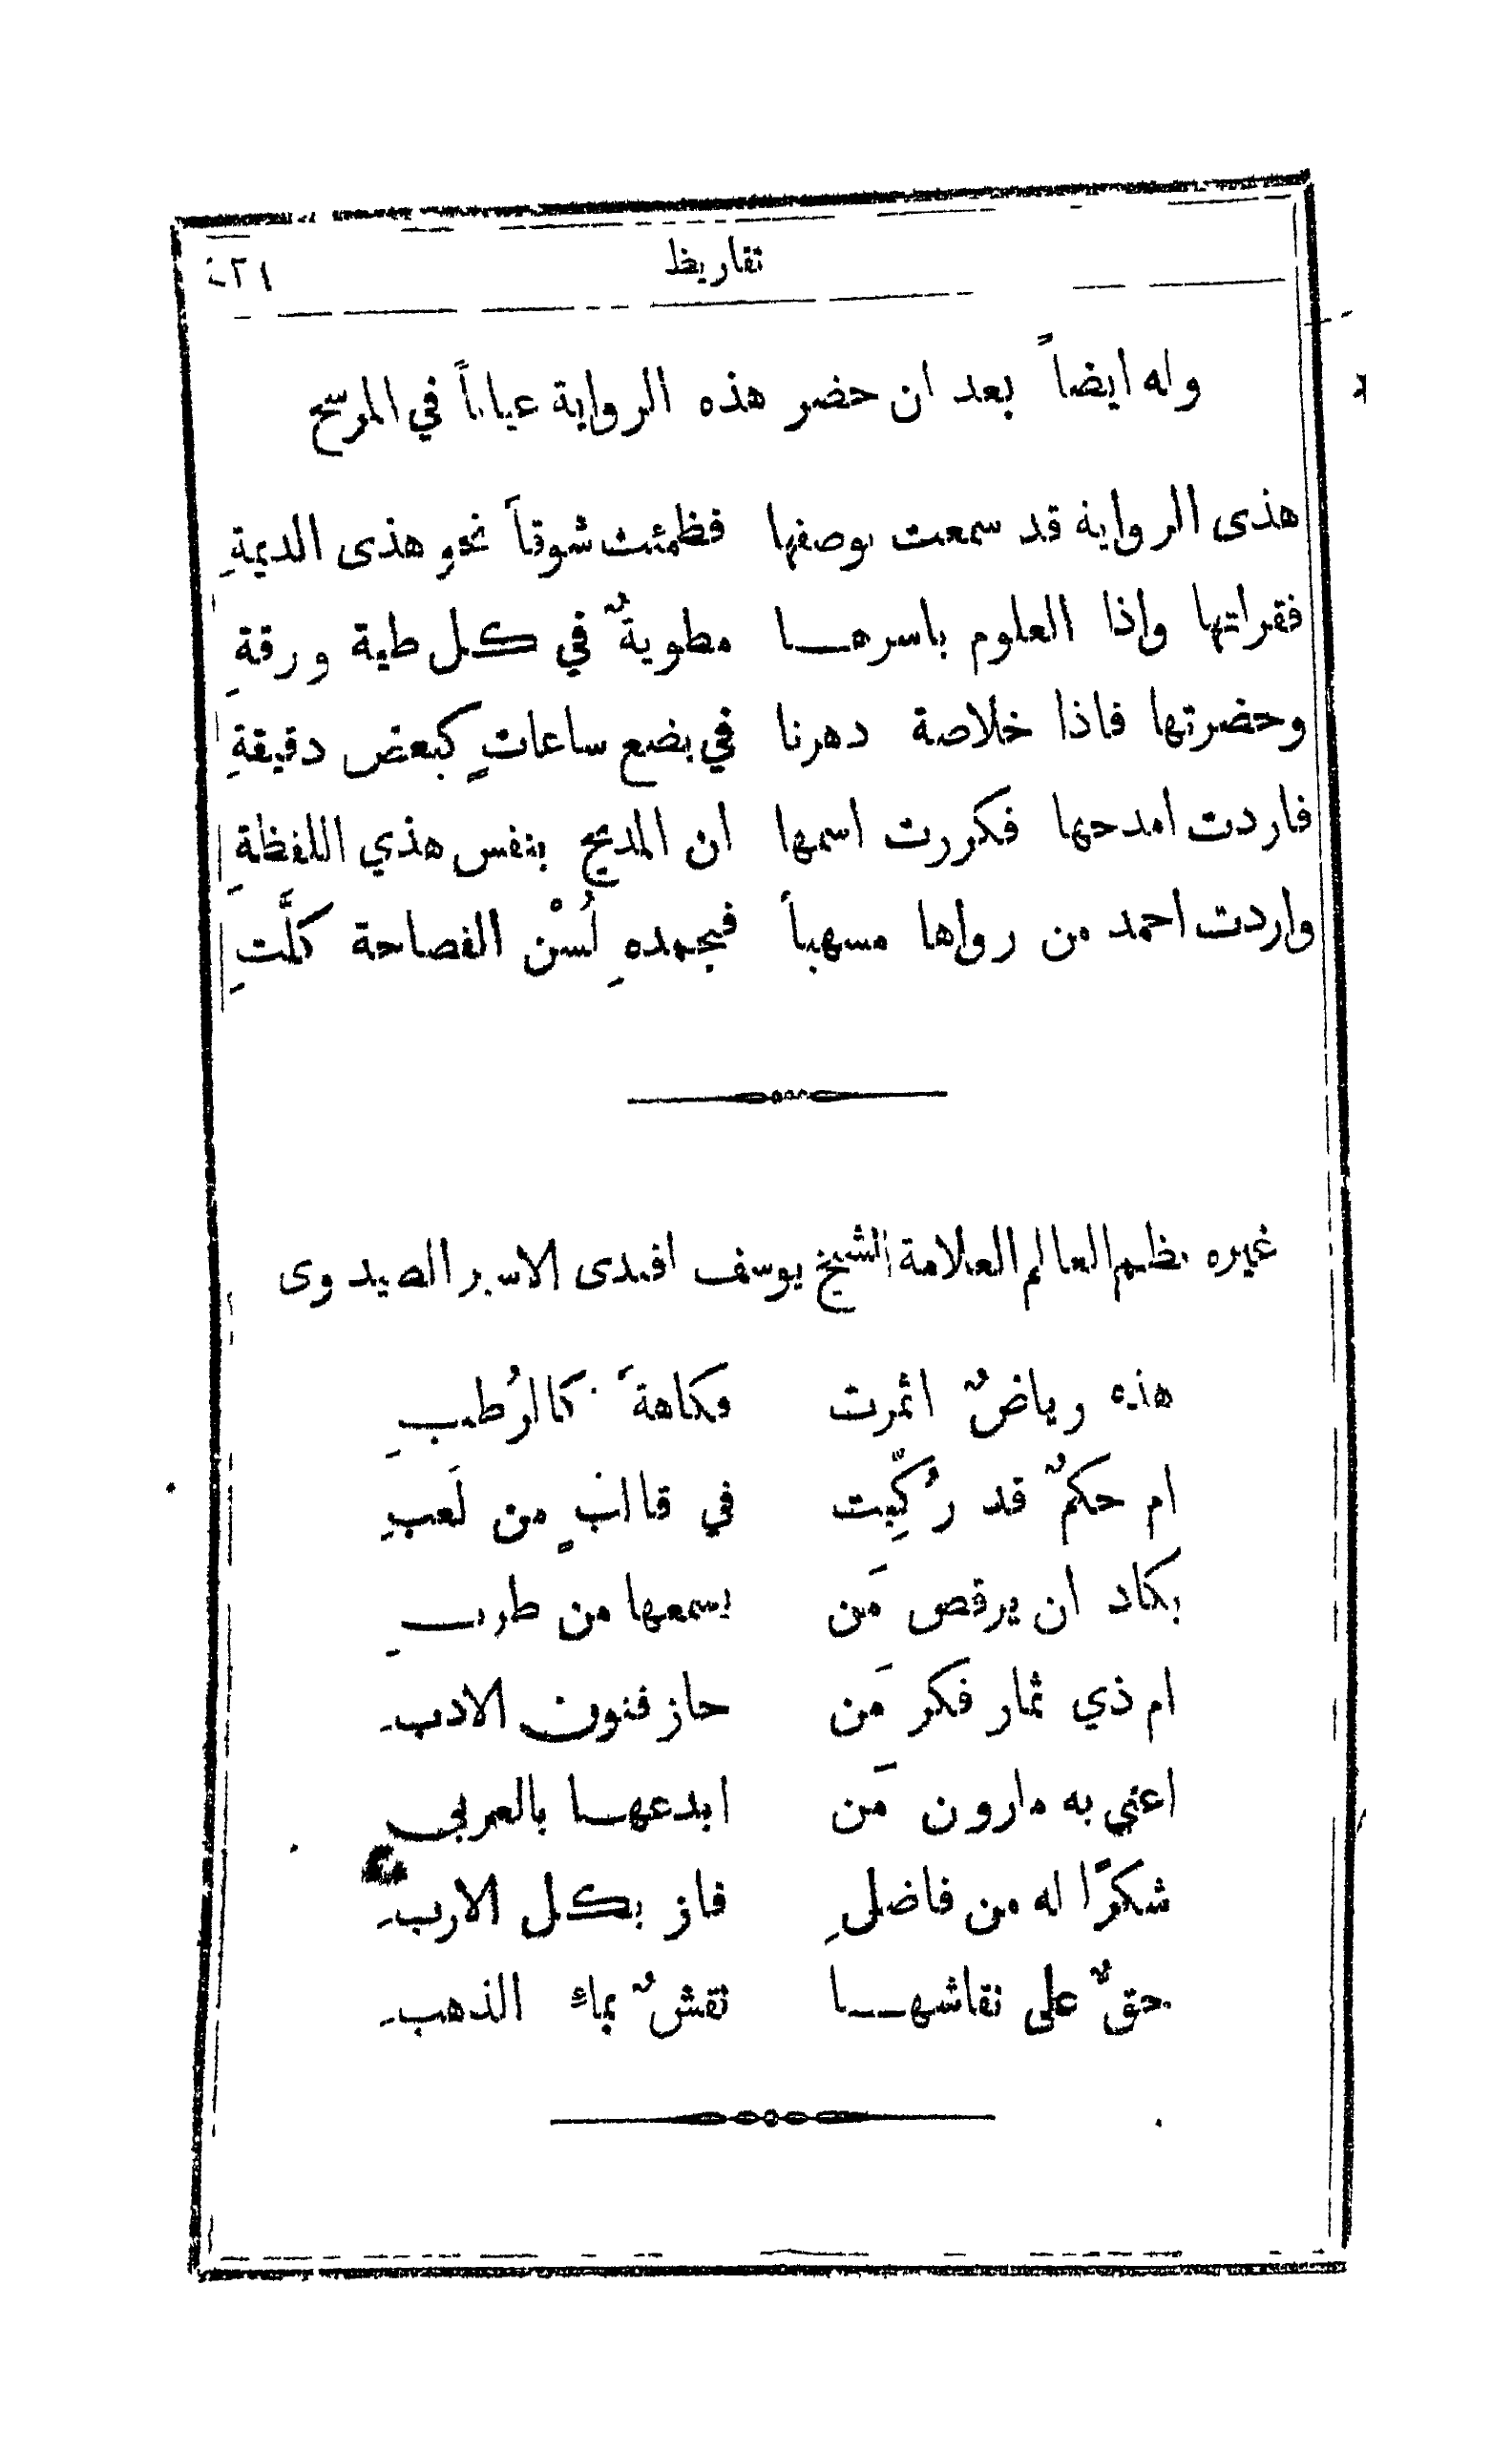 تقاريظ
وله ايضاً بعد ان حضر هذه الرواية عياناً في المرسح
هذى الرواية قد سمعت بوصفها فظمئت شوقاً نحو هذى الديمةِ
فقراتيها واذا العلوم باسرهـــا مطويةٌ في كل طية ورقةِ
وحضرتها فاذا خلاصة دهرنا في بضع ساعاتٍ كبعض دقيقةِ
فاردت امدحها فكررت اسمها ان المديح بنفس هذي اللفظةِ
واردت احمد من رواها مسهباً فبحمدهِ لُسْن الفصاحة كلَّتِ
غيره نظم العالم العلامة الشيخ يوسف افندى الاسير الصيدوى
هذه رياضٌ اثمرت فكاهةً كالرُطبِ
ام حكمٌ قد رُكِّبت في قالبٍ من لَعبِ
يكاد ان يرقص مَن يسمعها من طربِ
ام ذي ثمار فكر مَن حاز فنون الادبِ
اعني به مارون مَن ابدعهـا بالعربي
شكرًا له من فاضلِ فاز بكل الاربِ
حقٌ على نقاشهـــا نقشٌ بماءِ الذهبِ